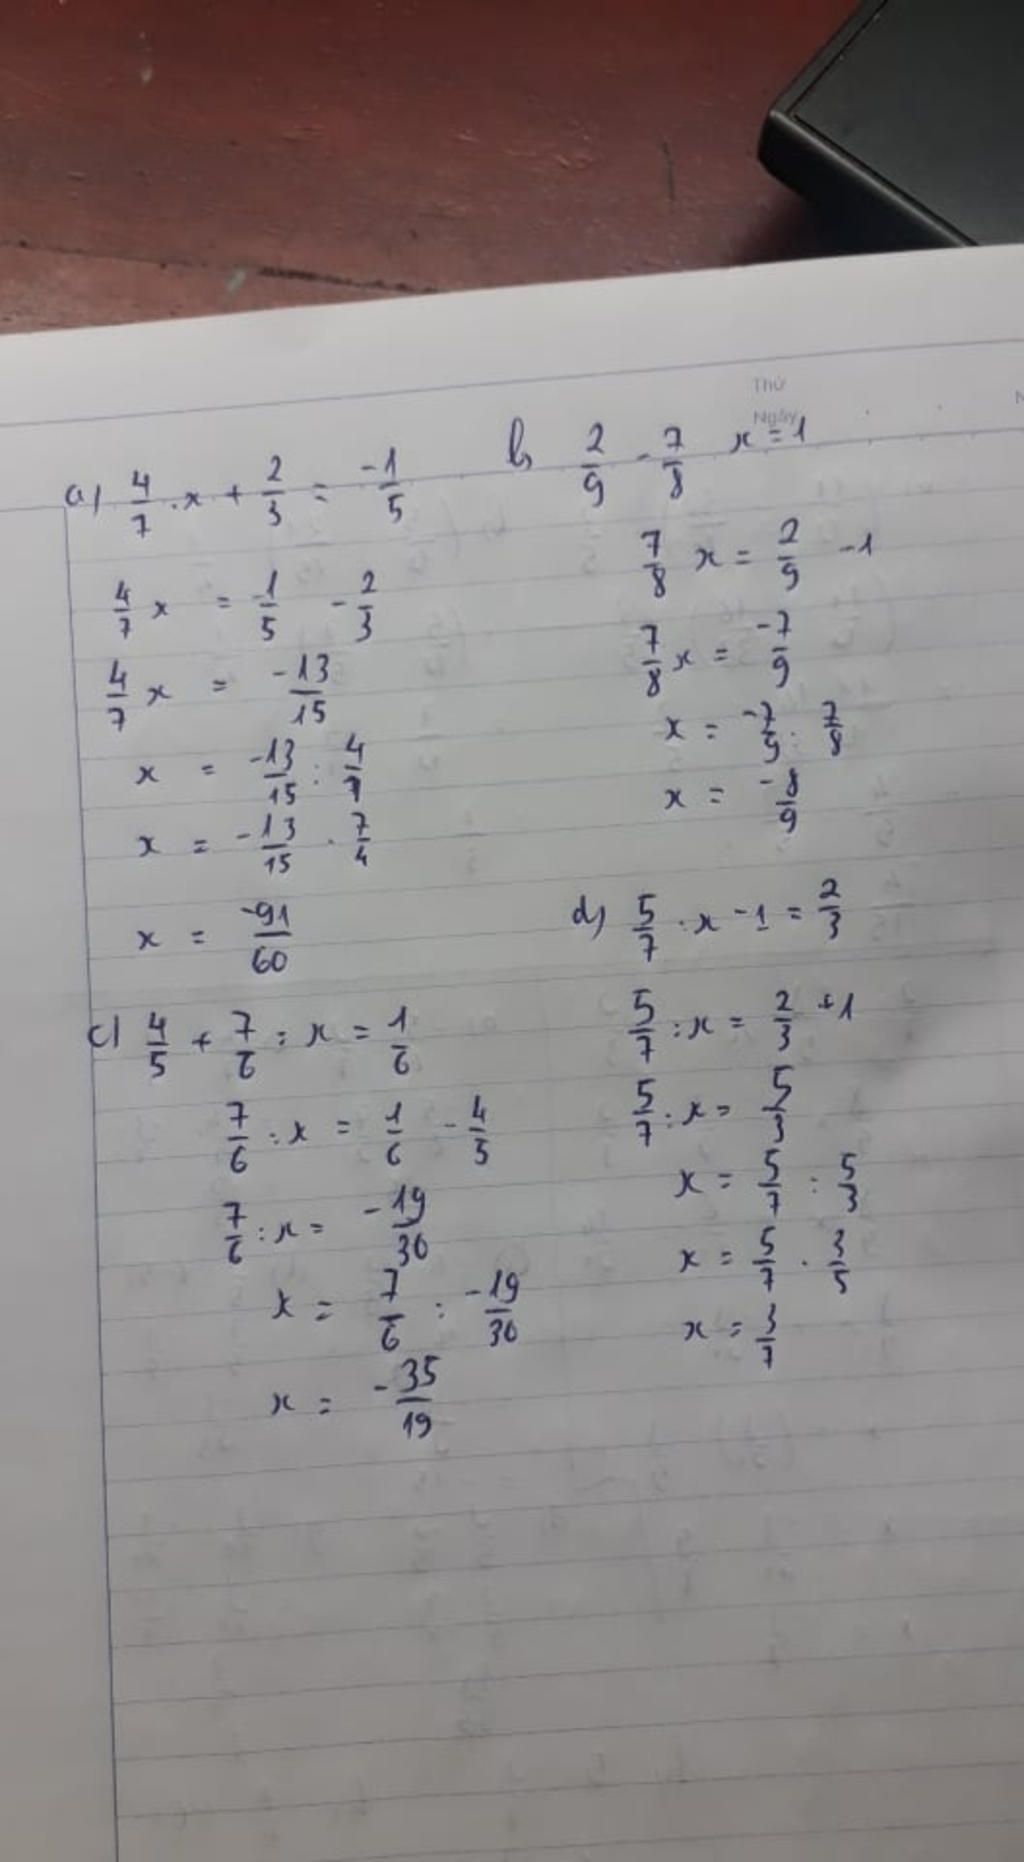 Thứ
Ngày
a) 4/7 . x + 2/3 = -1/5
4/7 x = -1/5 - 2/3
4/7 x = -13/15
x = -13/15 : 4/7
x = -13/15 . 7/4
x = -91/60
b) 2/9 - 7/8 x = 1
7/8 x = 2/9 - 1
7/8 x = -7/9
x = -7/9 : 7/8
x = -8/9
c) 4/5 + 7/6 : x = 1/6
7/6 : x = 1/6 - 4/5
7/6 : x = -19/30
x = 7/6 : -19/30
x = -35/19
d) 5/7 . x - 1 = 2/3
5/7 : x = 2/3 + 1
5/7 : x = 5/3
x = 5/7 : 5/3
x = 5/7 . 3/5
x = 3/7